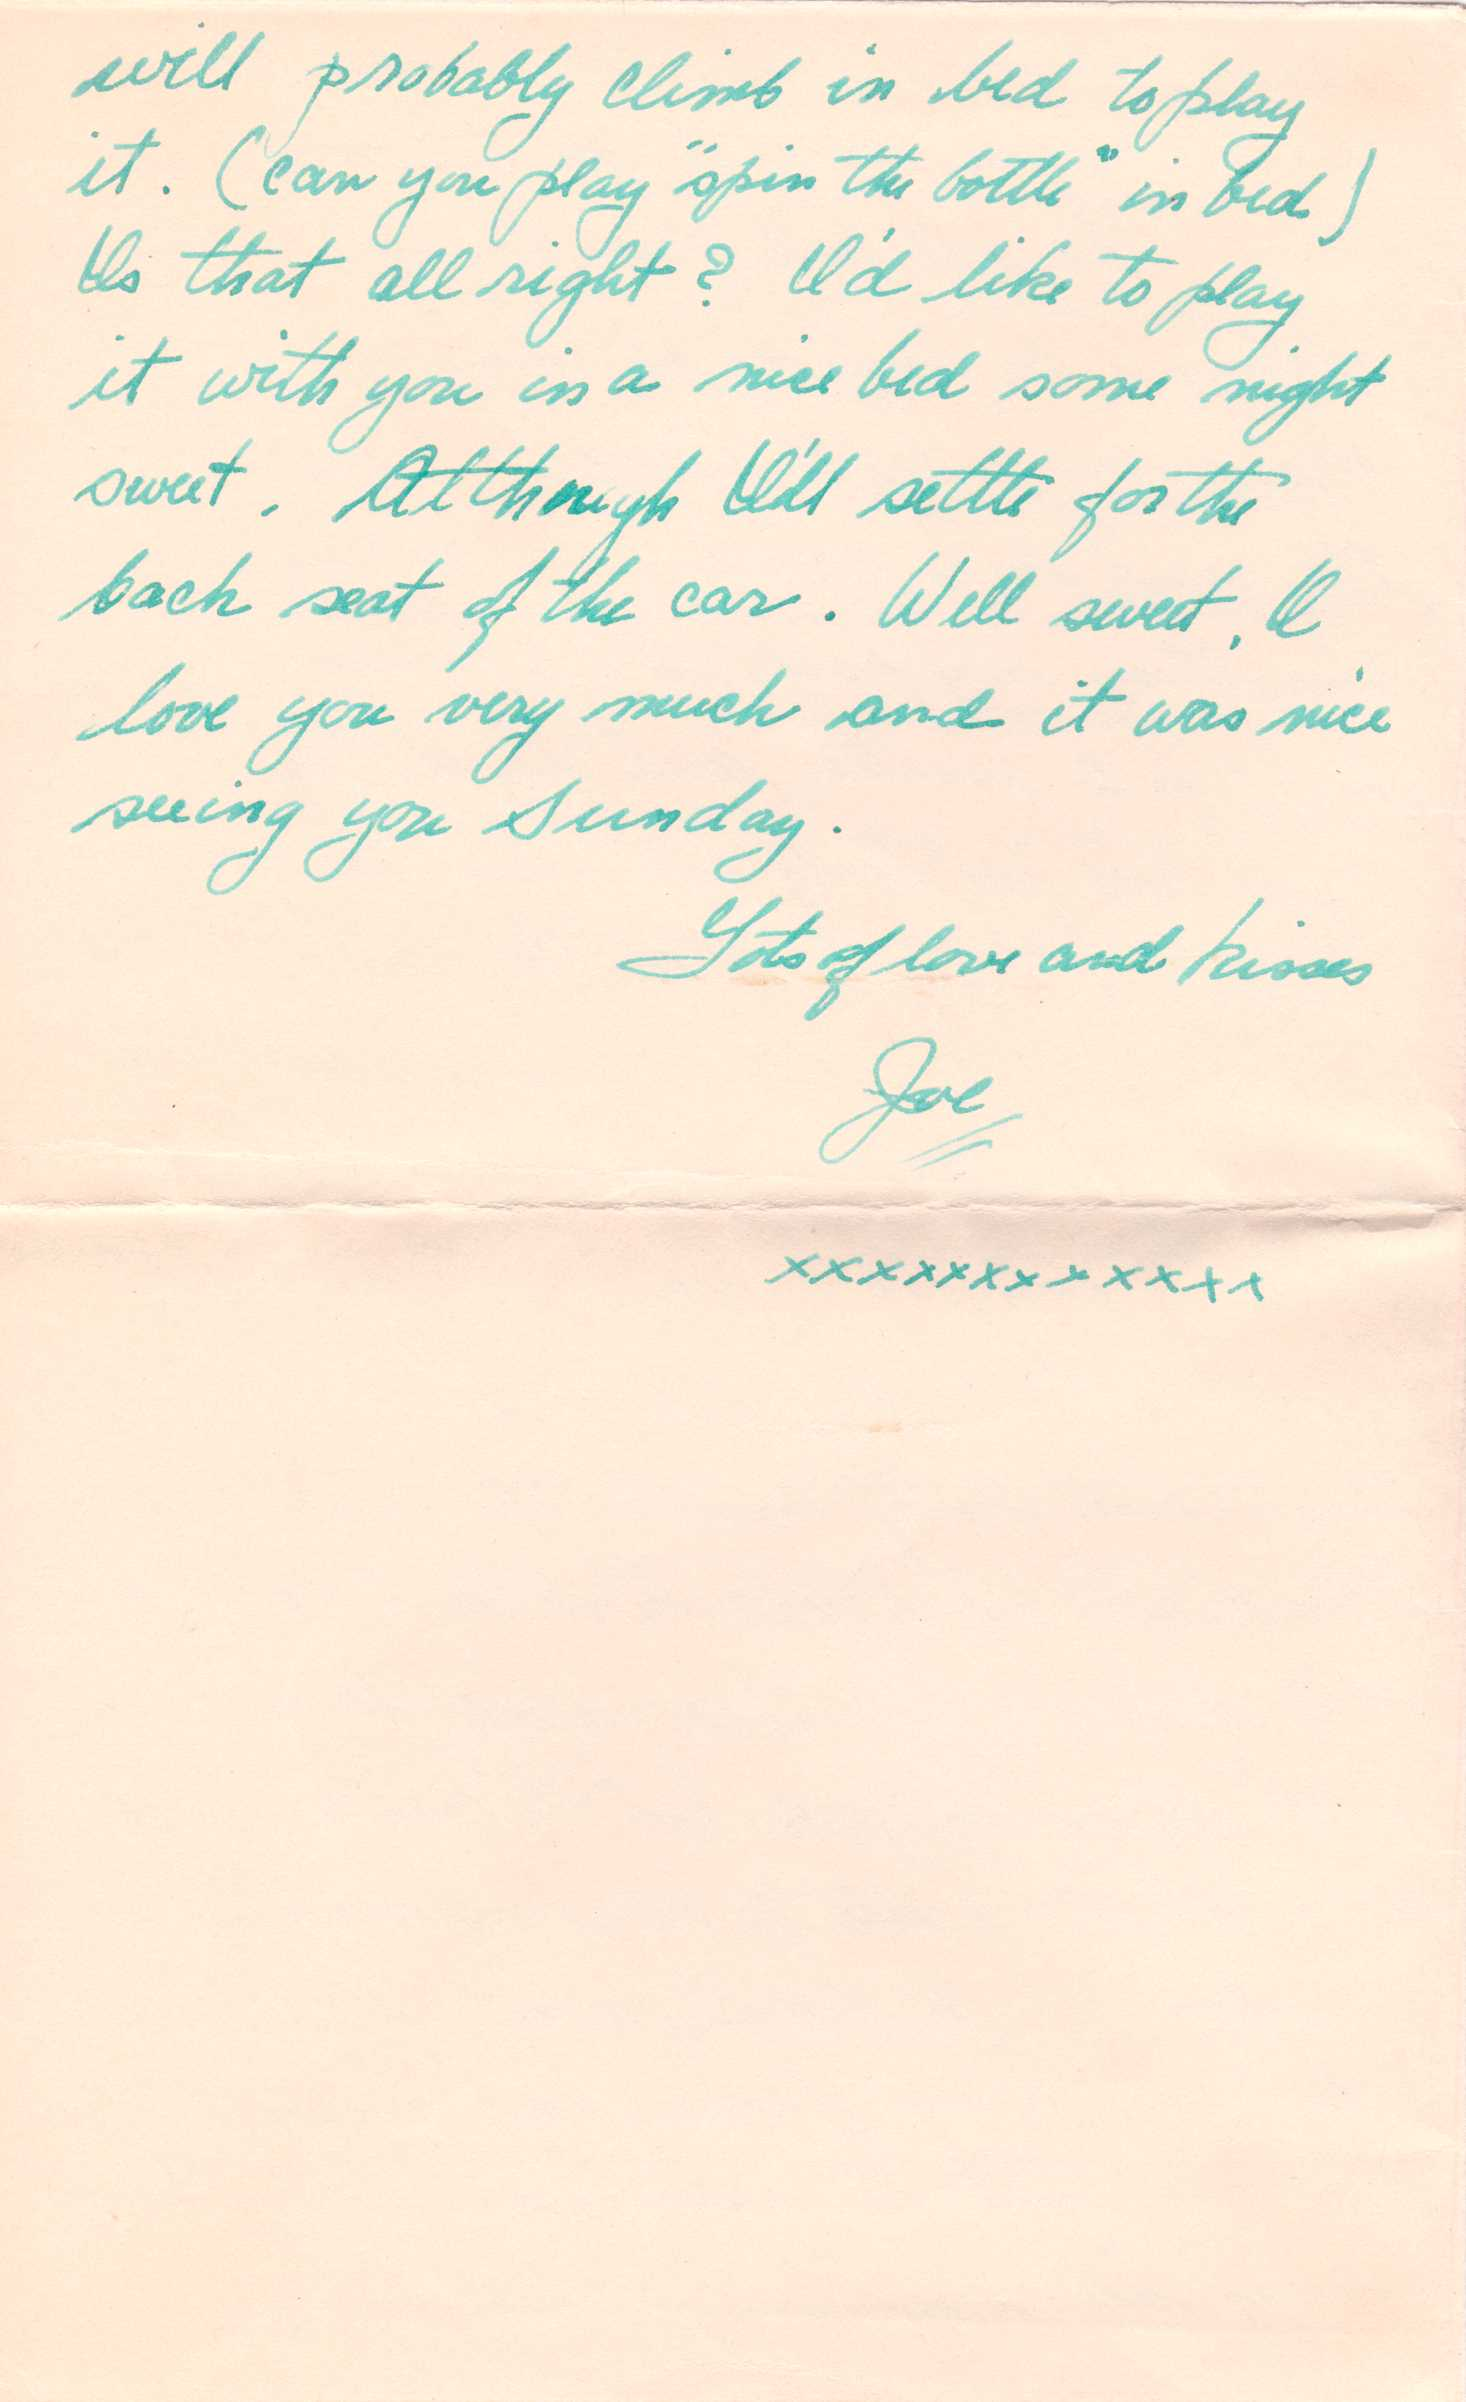 will probably climb in bed to play
it. (can you play "spin the bottle" in bed)
Is that all right? I'd like to play
it with you in a nice bed some night
sweet. Although I'll settle for the
back seat of the car. Well sweet, I
love you very much and it was nice
seeing you Sunday.
Lots of love and kisses
Joe
xxxxxxxxxxxx